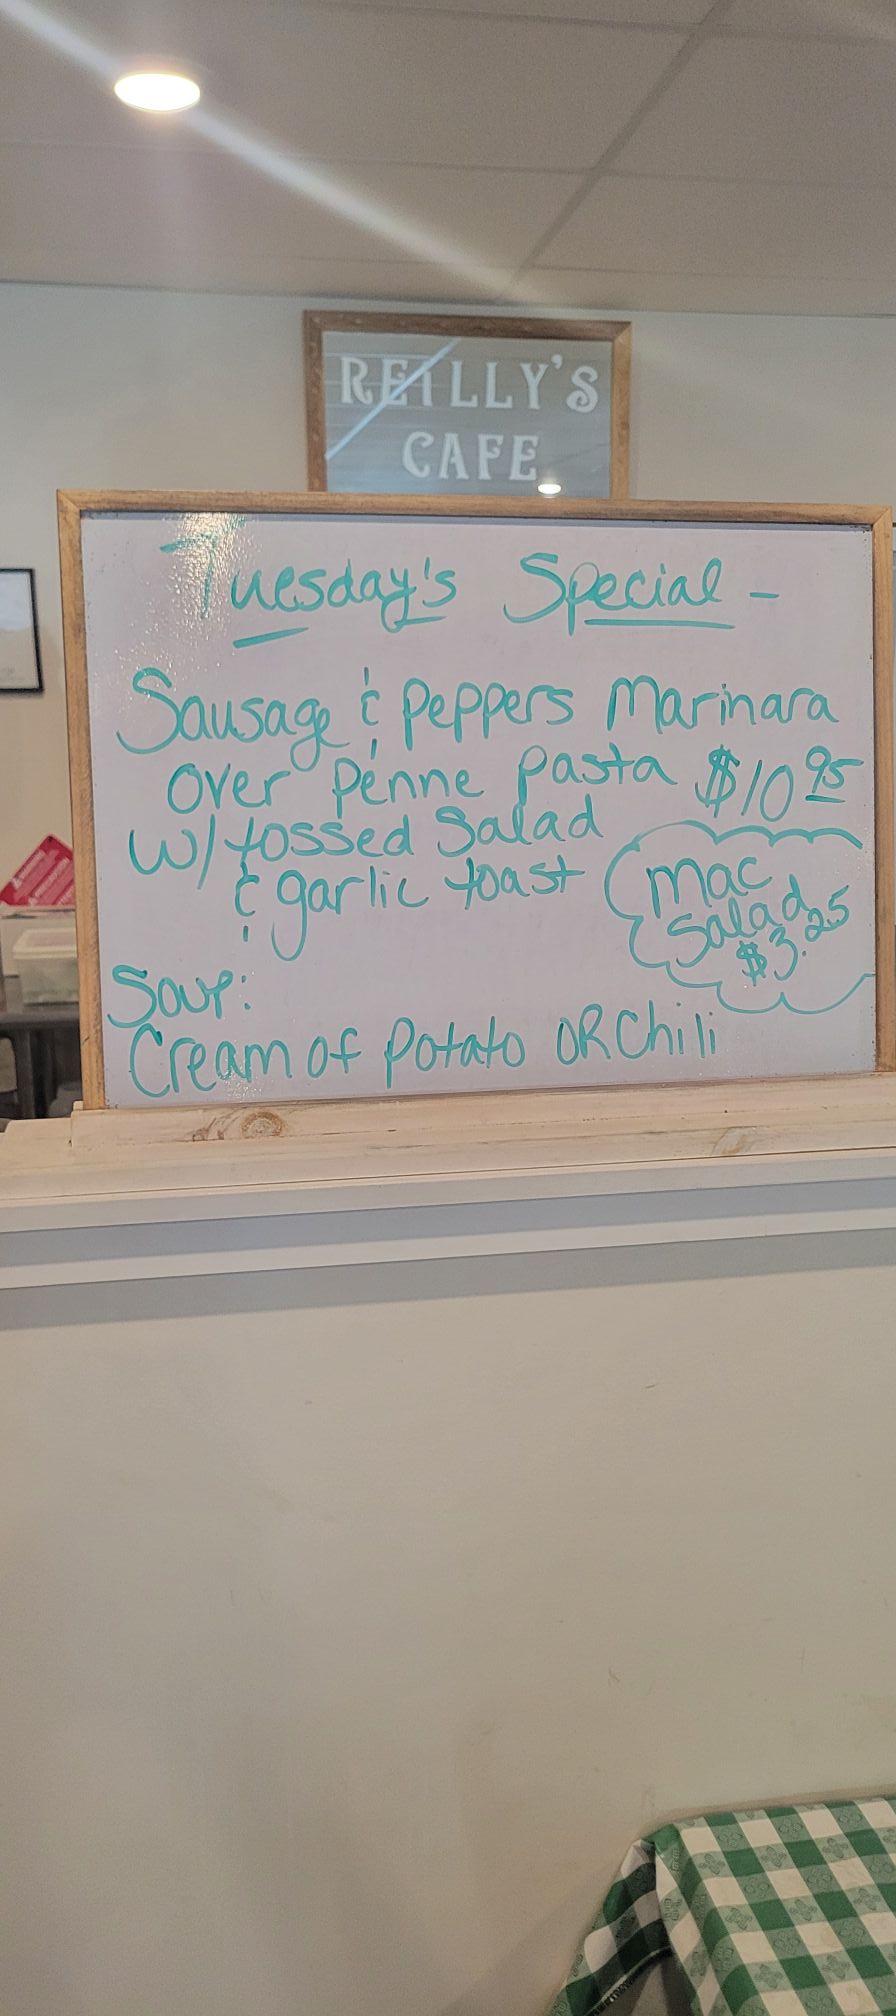 REILLY'S
CAFE
Tuesday's Special -
Sausage & Peppers Marinara
over penne pasta $10.95
w/ tossed Salad
& garlic toast
Mac
Salad
$3.25
Soup:
Cream of Potato OR Chili